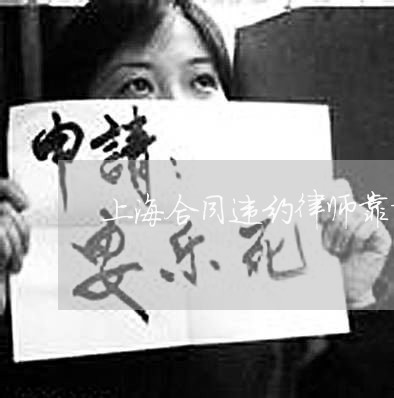 申請：
上海合同违约律师靠
安乐死